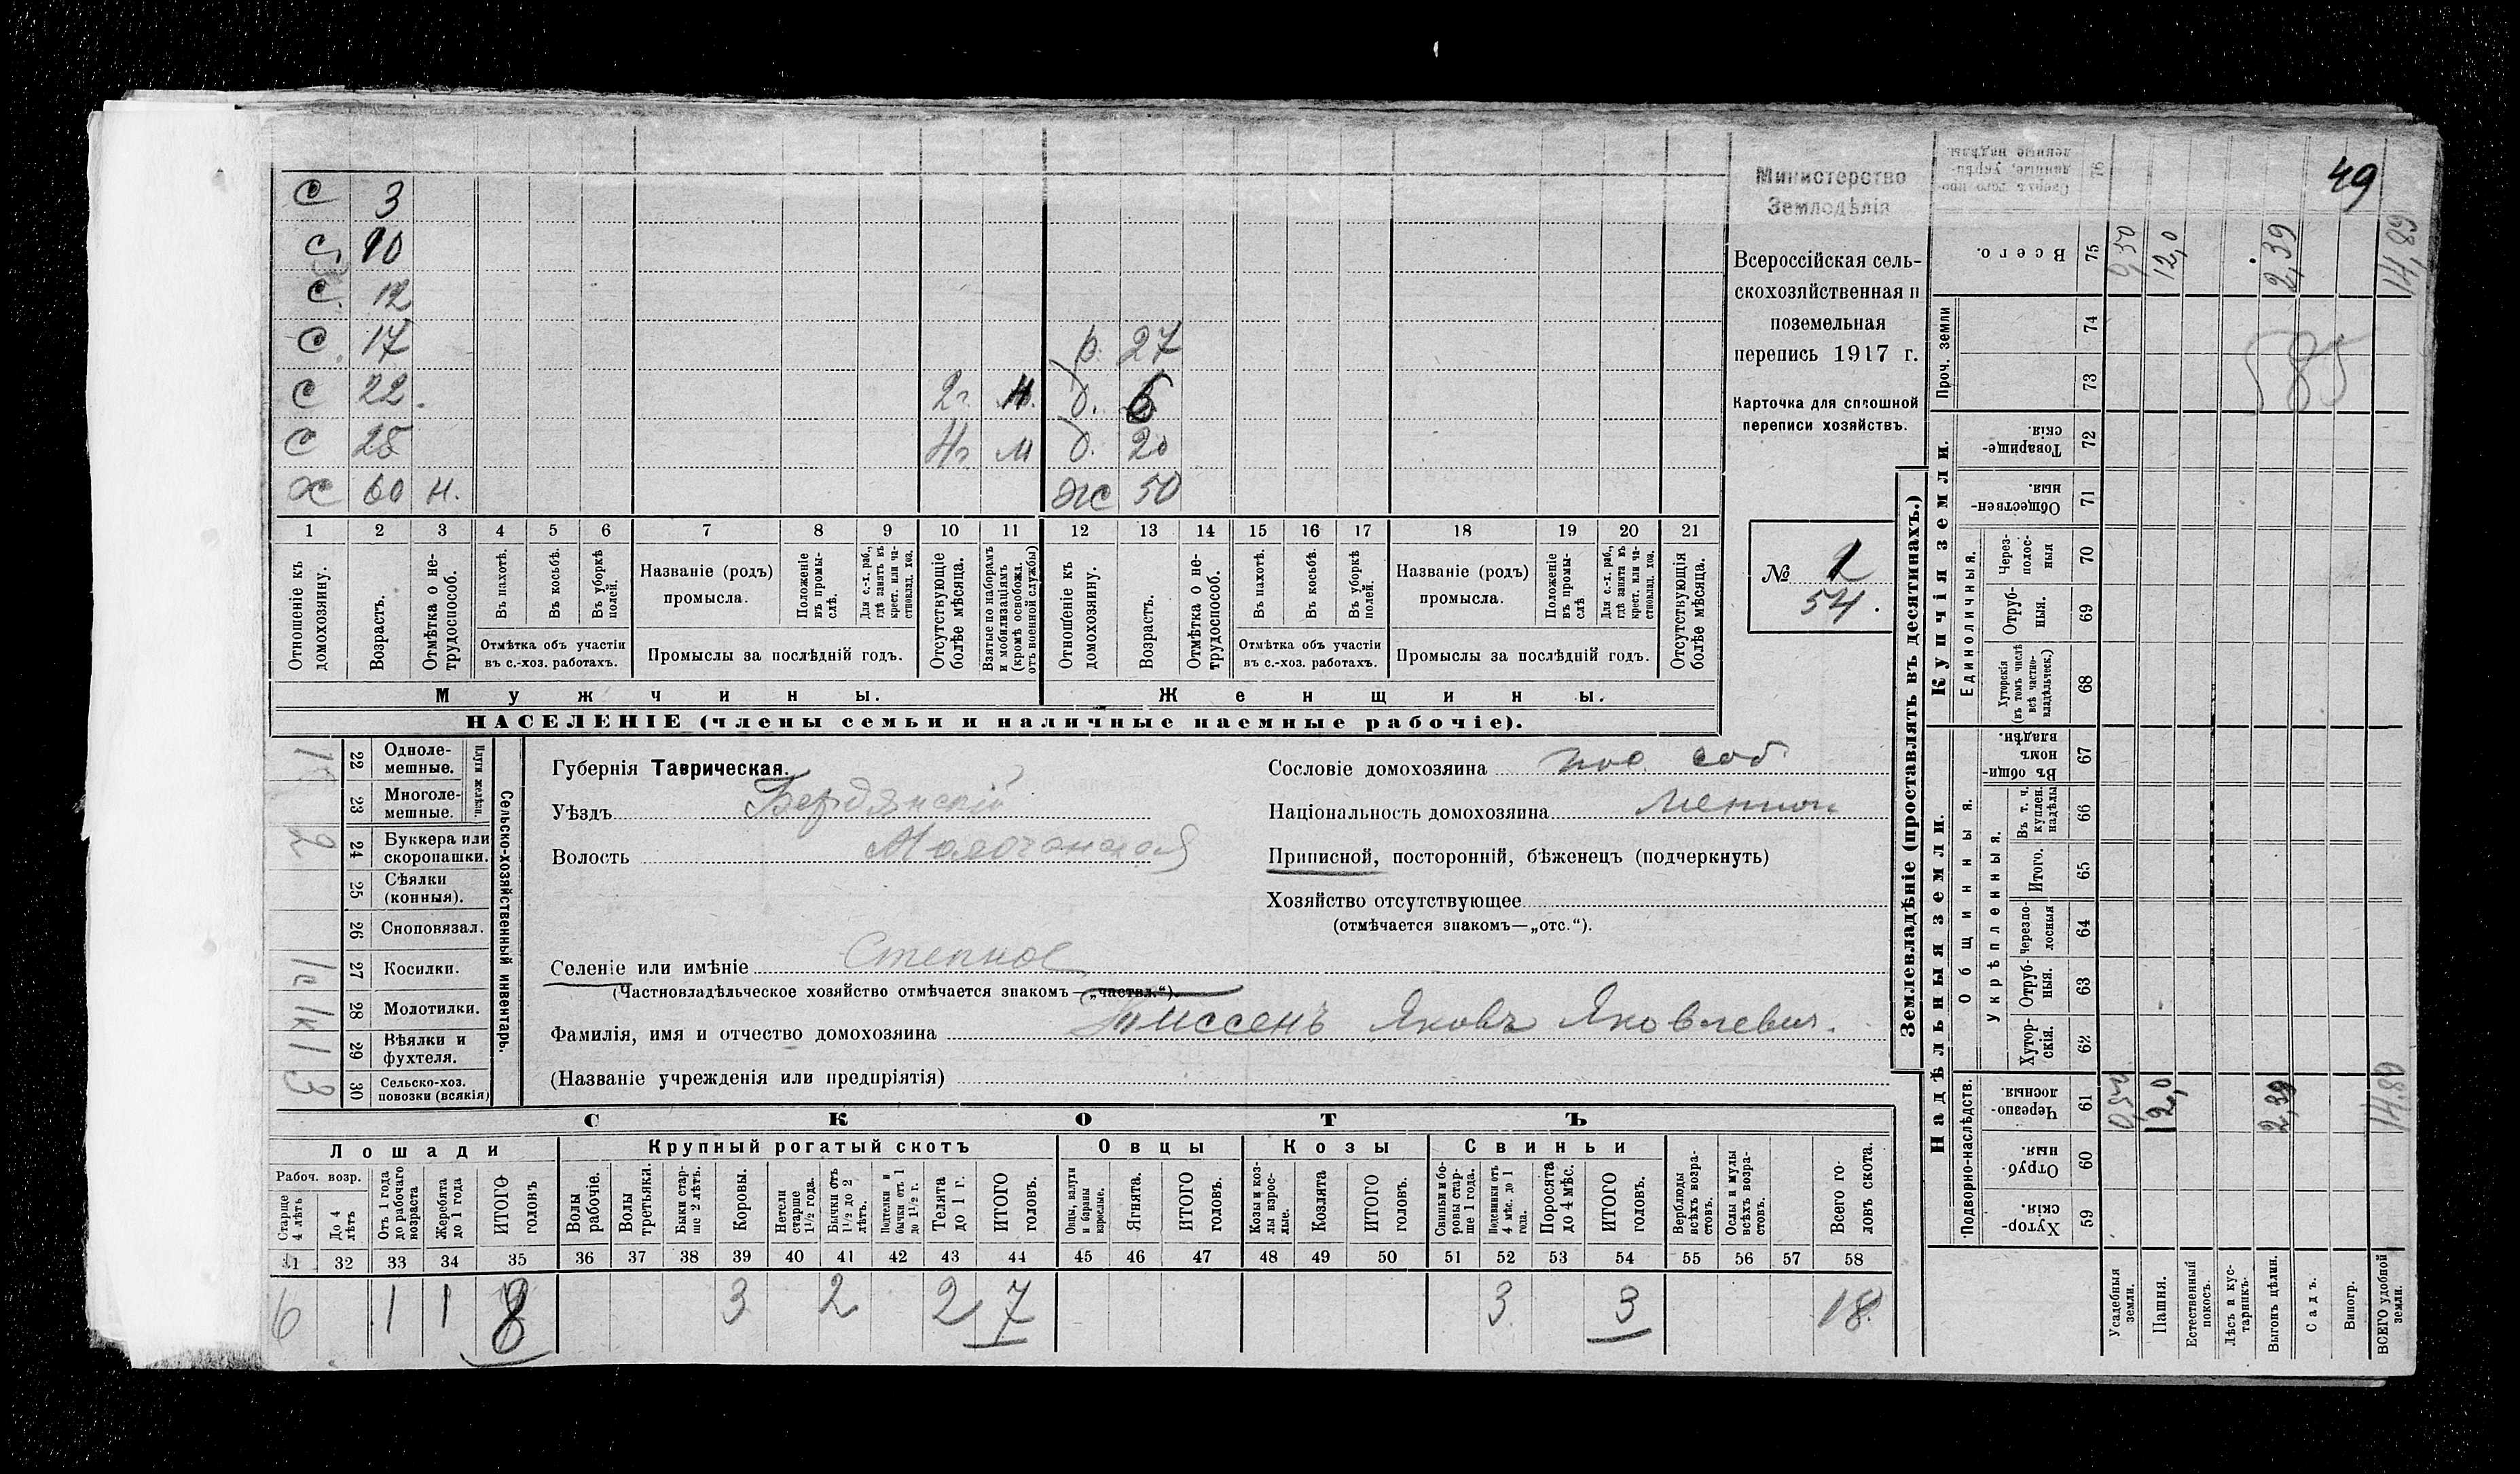 49
С 3
С 10
С. 12
С 17 р. 27
С 22. 2г. Н. д. 6
С 25 4г м д. 20
Х 60 н. Жс 50
1 2 3 4 5 6 7 8 9 10 11 12 13 14 15 16 17 18 19 20 21
Отношеніе къ домохозяину.
Возрастъ.
Отмѣтка о нетрудоспособ.
Въ пахотѣ.
Въ косьбѣ.
Въ уборкѣ полей.
Отмѣтка объ участіи въ с.-хоз. работахъ.
Названіе (родъ) промысла.
Положеніе въ промыслѣ.
Для с.-х. раб., гдѣ занятъ въ крест. или частновлад. хоз.
Промыслы за послѣдній годъ.
Отсутствующіе болѣе мѣсяца.
Взятые по наборамъ и мобилизаціямъ (кромѣ освобожд. отъ военной службы)
Отношеніе къ домохозяину.
Возрастъ.
Отмѣтка о нетрудоспособ.
Въ пахотѣ.
Въ косьбѣ.
Въ уборкѣ полей.
Отмѣтка объ участіи въ с.-хоз. работахъ.
Названіе (родъ) промысла.
Положеніе въ промыслѣ
Для с.-х. раб., гдѣ занята въ крест. или частновлад. хоз.
Промыслы за послѣдній годъ.
Отсутствующія болѣе мѣсяца.
Мужчины. Женщины.
НАСЕЛЕНІЕ (члены семьи и наличные наемные рабочіе).
Министерство
Земледѣлія
Всероссійская сель-
скохозяйственная и
поземельная
перепись 1917 г.
Карточка для сплошной
переписи хозяйствъ.
№
54.
Сельско-хозяйственный инвентарь.
Плуги желѣзн.
22 Однолемешные. 1
23 Многолемешные.
24 Буккера или скоропашки. 2
25 Сѣялки (конныя).
26 Сноповязал.
27 Косилки.
28 Молотилки. 1к
29 Вѣялки и фухтеля. 1
30 Сельско-хоз. повозки (всякія) 3
Губернія Таврическая.
Уѣздъ Бердянскій
Волость Молочанская
Селеніе или имѣніе Степное
(Частновладѣльческое хозяйство отмѣчается знакомъ—„частвл.“).
Фамилія, имя и отчество домохозяина Тиссенъ Яковъ Яковлевич.
(Названіе учрежденія или предпріятія)
Сословіе домохозяина пос. соб
Національность домохозяина Меннон
Приписной, посторонній, бѣженецъ (подчеркнуть)
Хозяйство отсутствующее
(отмѣчается знакомъ—„отс.“).
СКОТЪ
Лошади Крупный рогатый скотъ Овцы Козы Свиньи
Рабоч. возр.
Старше 4 лѣтъ
До 4 лѣтъ
Отъ 1 года до рабочаго возраста
Жеребята до 1 года
ИТОГО головъ
Волы рабочіе.
Волы третьяки.
Быки старше 2 лѣтъ.
Коровы.
Нетели старше 1½ года.
Бычки отъ 1½ до 2 лѣтъ.
Подтелки и бычки отъ 1 до 1½ г.
Телята до 1 г.
ИТОГО головъ.
Овцы, валухи и бараны взрослые.
Ягнята.
ИТОГО головъ.
Козы и козлы взрослые.
Козлята
ИТОГО головъ.
Свиньи и боровы старше 1 года.
Подсвинки отъ 4 мѣс. до 1 года.
Поросята до 4 мѣс.
ИТОГО головъ.
Верблюды всѣхъ возрастовъ.
Ослы и мулы всѣхъ возрастовъ.
Всего головъ скота.
31 32 33 34 35 36 37 38 39 40 41 42 43 44 45 46 47 48 49 50 51 52 53 54 55 56 57 58
6 1 1 8 3 2 2 7 3 3 18
Землевладѣніе (проставлять въ десятинахъ.)
Купчія земли.
Надѣльныя земли.
Единоличныя.
Общинныя.
Укрѣпленныя.
Подворно-наслѣдств.
Проч. земли
Сверх того проданные, укрѣпленные надѣлы. 76
Всего. 75
74
73
Товарищескія. 72
Общественныя. 71
Черезполосныя 70
Отрубныя. 69
Хуторскія (въ томъ числѣ всѣ частновладѣльческ.) 68
Въ общинномъ владѣн. 67
Въ т. ч. куплен. надѣлы 66
Итого. 65
Черезполосныя 64
Отрубныя. 63
Хуторскія. 62
Черезполосныя. 61
Отрубныя. 60
Хуторскія. 59
Усадебныя земли. 0,50 0,50
Пашня. 12,0 12,0
Естественный покосъ.
Лѣсъ и кустарникъ.
Выгонъ цѣлин. 2,39 2,39
Садъ.
Виногр.
ВСЕГО удобной земли. 14,89 14,89
585